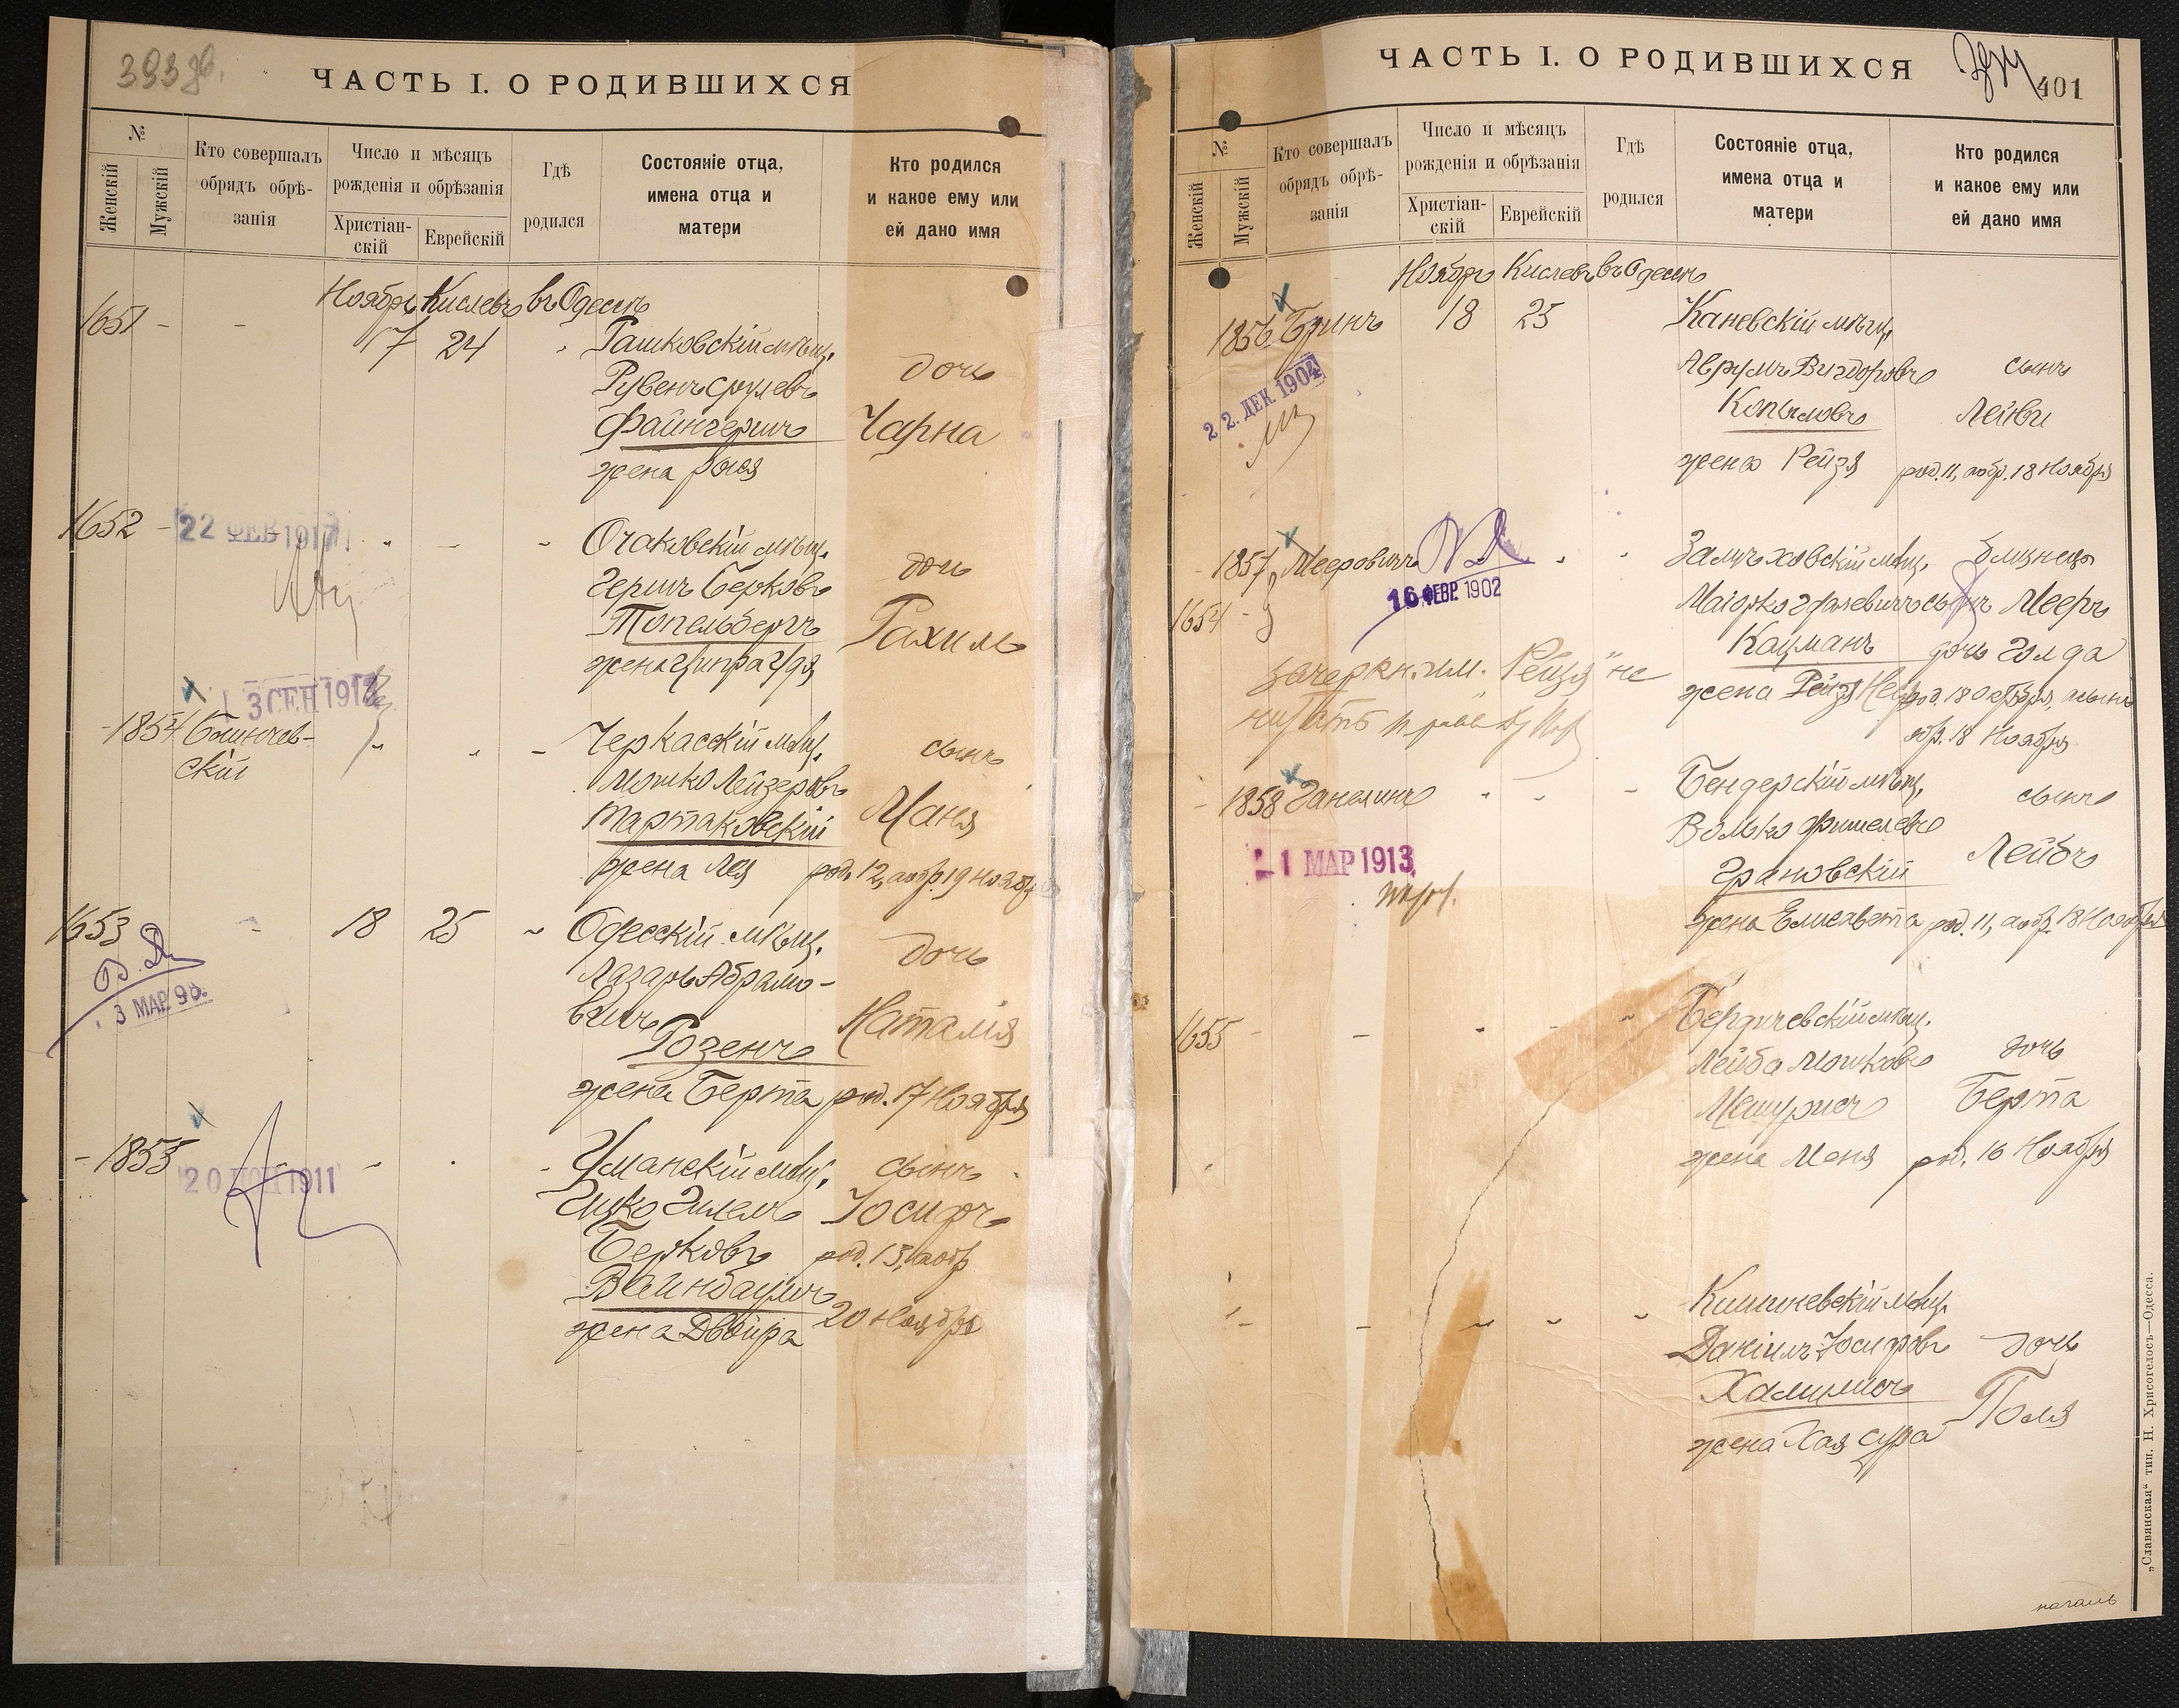 393 об.
ЧАСТЬ I. О РОДИВШИХСЯ
№
Женскій
Мужскій
Кто совершалъ
обрядъ обрѣ-
занія
Число и мѣсяцъ
рожденія и обрѣзанія
Христіан-
скій
Еврейскій
Гдѣ
родился
Состояніе отца,
имена отца и
матери
Кто родился
и какое ему или
ей дано имя
Ноябрь Кислевъ въ Одессѣ
1651 - - 17 24 Рашковскій мѣщ.
Рувенъ Срулевъ дочь
Файнгершъ Чарна
жена Рыся
1652 - 22 ФЕВ 1917 Очаковскій мѣщ.
Гершъ Берковъ дочь
Топельбергъ Рахиль
жена Ципра Удя
13 СЕН 1912
- 1854 Черкасскій мѣщ. сынъ
скій
Мошко Лейзеровъ
Тартаковскій Маня
жена Лея род. 12, а обр. 19 Ноября
1653 - 18 25 Одесскій мѣщ. дочь
3 МАР 98.
Лазарь Абрамо-
вичъ Наталія
Розенъ
жена Берта род. 17 Ноября
- 1855 20 1911 Уманскій мѣщ. сынъ
Ицко Гилель Іосифъ
Берковъ род. 13, а обр
Вайнбаумъ
жена Двойра 20 Ноября
ЧАСТЬ I. О РОДИВШИХСЯ
401
№
Женскій
Мужскій
Кто совершалъ
обрядъ обрѣ-
занія
Число и мѣсяцъ
рожденія и обрѣзанія
Христіан-
скій
Еврейскій
Гдѣ
родился
Состояніе отца,
имена отца и
матери
Кто родился
и какое ему или
ей дано имя
Ноябрь Кислевъ въ Одессѣ
1856 Бринъ 18 25 Каневскій мѣщ.
22. ДЕК 1904
Аврумъ Вигдоровъ сынъ
Копыловъ Лейви
жена Рейзя род. 11, а обр. 18 Ноября
- 1857 Мееровичъ мѣщ. близнецы
16 ФЕВР. 1902
1654 - сынъ Мееръ
Кацманъ дочь Голда
зачеркн. им. "Рейзя" не
жена Рейзя
читать
обр. 18 Ноября
- 1858 Ганелинъ - - - Бендерскій мѣщ. сынъ
Волько Фишелевъ
1 МАР 1913
Грановскій Лейбъ
жена Елисавета род. 11, а обр. 18 Ноября
1655 - - Бердичевскій мѣщ.
Лейба Мошковъ дочь
Мешурисъ Берта
жена Меня род. 16 Ноября
Кишиневскій мѣщ.
Даніилъ Іосифовъ дочь
Халимисъ Поля
жена Хая Сура
„Славянская“ тип. Н. Хрисогелосъ—Одесса.